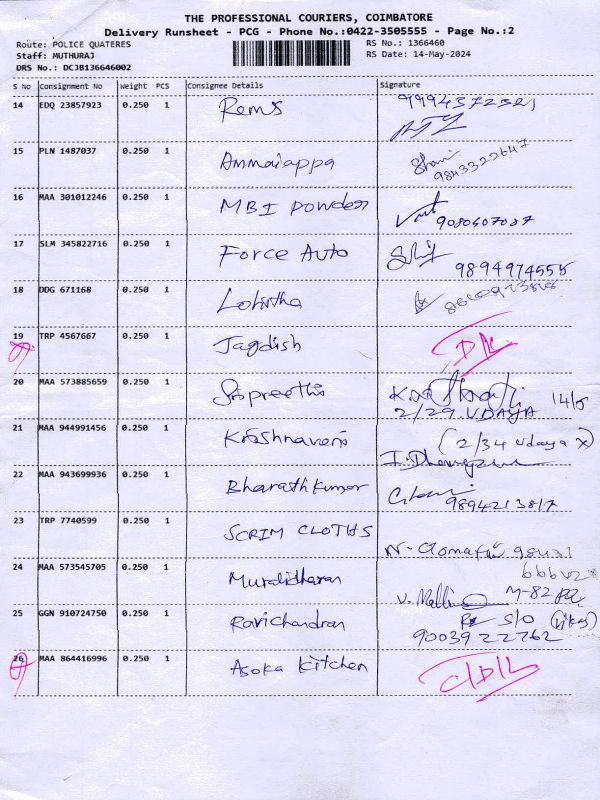 THE PROFESSIONAL COURIERS, COIMBATORE
Delivery Runsheet - PCG - Phone No.:0422-3505555 - Page No.:2
Route: POLICE QUATERES
Staff: MUTHURAJ
DRS No.: DCJB136646002
RS No.: 1366460
RS Date: 14-May-2024
S No Consignment No Weight PCS Consignee Details Signature
14 EDQ 23857923 0.250 1 Rems
15 PLN 1487037 0.250 1 Ammaiappa 9843322647
16 MAA 301012246 0.250 1 MBI Powder 9080407087
17 SLM 345822716 0.250 1 Force Auto 9894974555
18 DDG 671168 0.250 1 Lohitha
19 TRP 4567667 0.250 1 Jagdish
20 MAA 573885659 0.250 1 Sripreethi 14/5
2/29 UDAYA
21 MAA 944991456 0.250 1 Krishnaveni (2/34 Udaya x)
22 MAA 943699936 0.250 1 Bharath Kumar
9894213817
23 TRP 7740599 0.250 1 SCRIM CLOTHS
24 MAA 573545705 0.250 1 Muralidharan M-82
25 GGN 910724750 0.250 1 Ravichandran S/O
9003922762
26 MAA 864416996 0.250 1 Asoka Kitchen